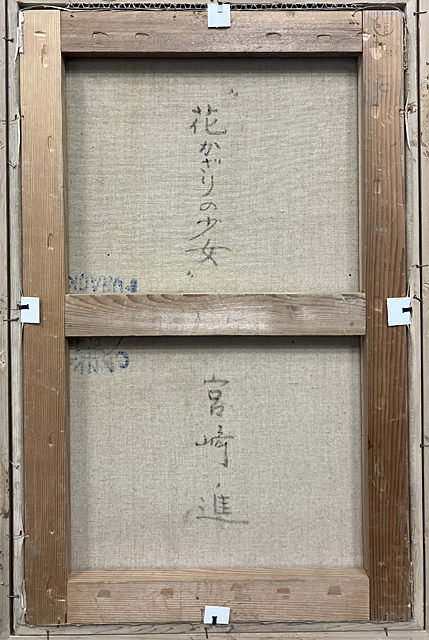 "花かざりの少女"
宮崎進